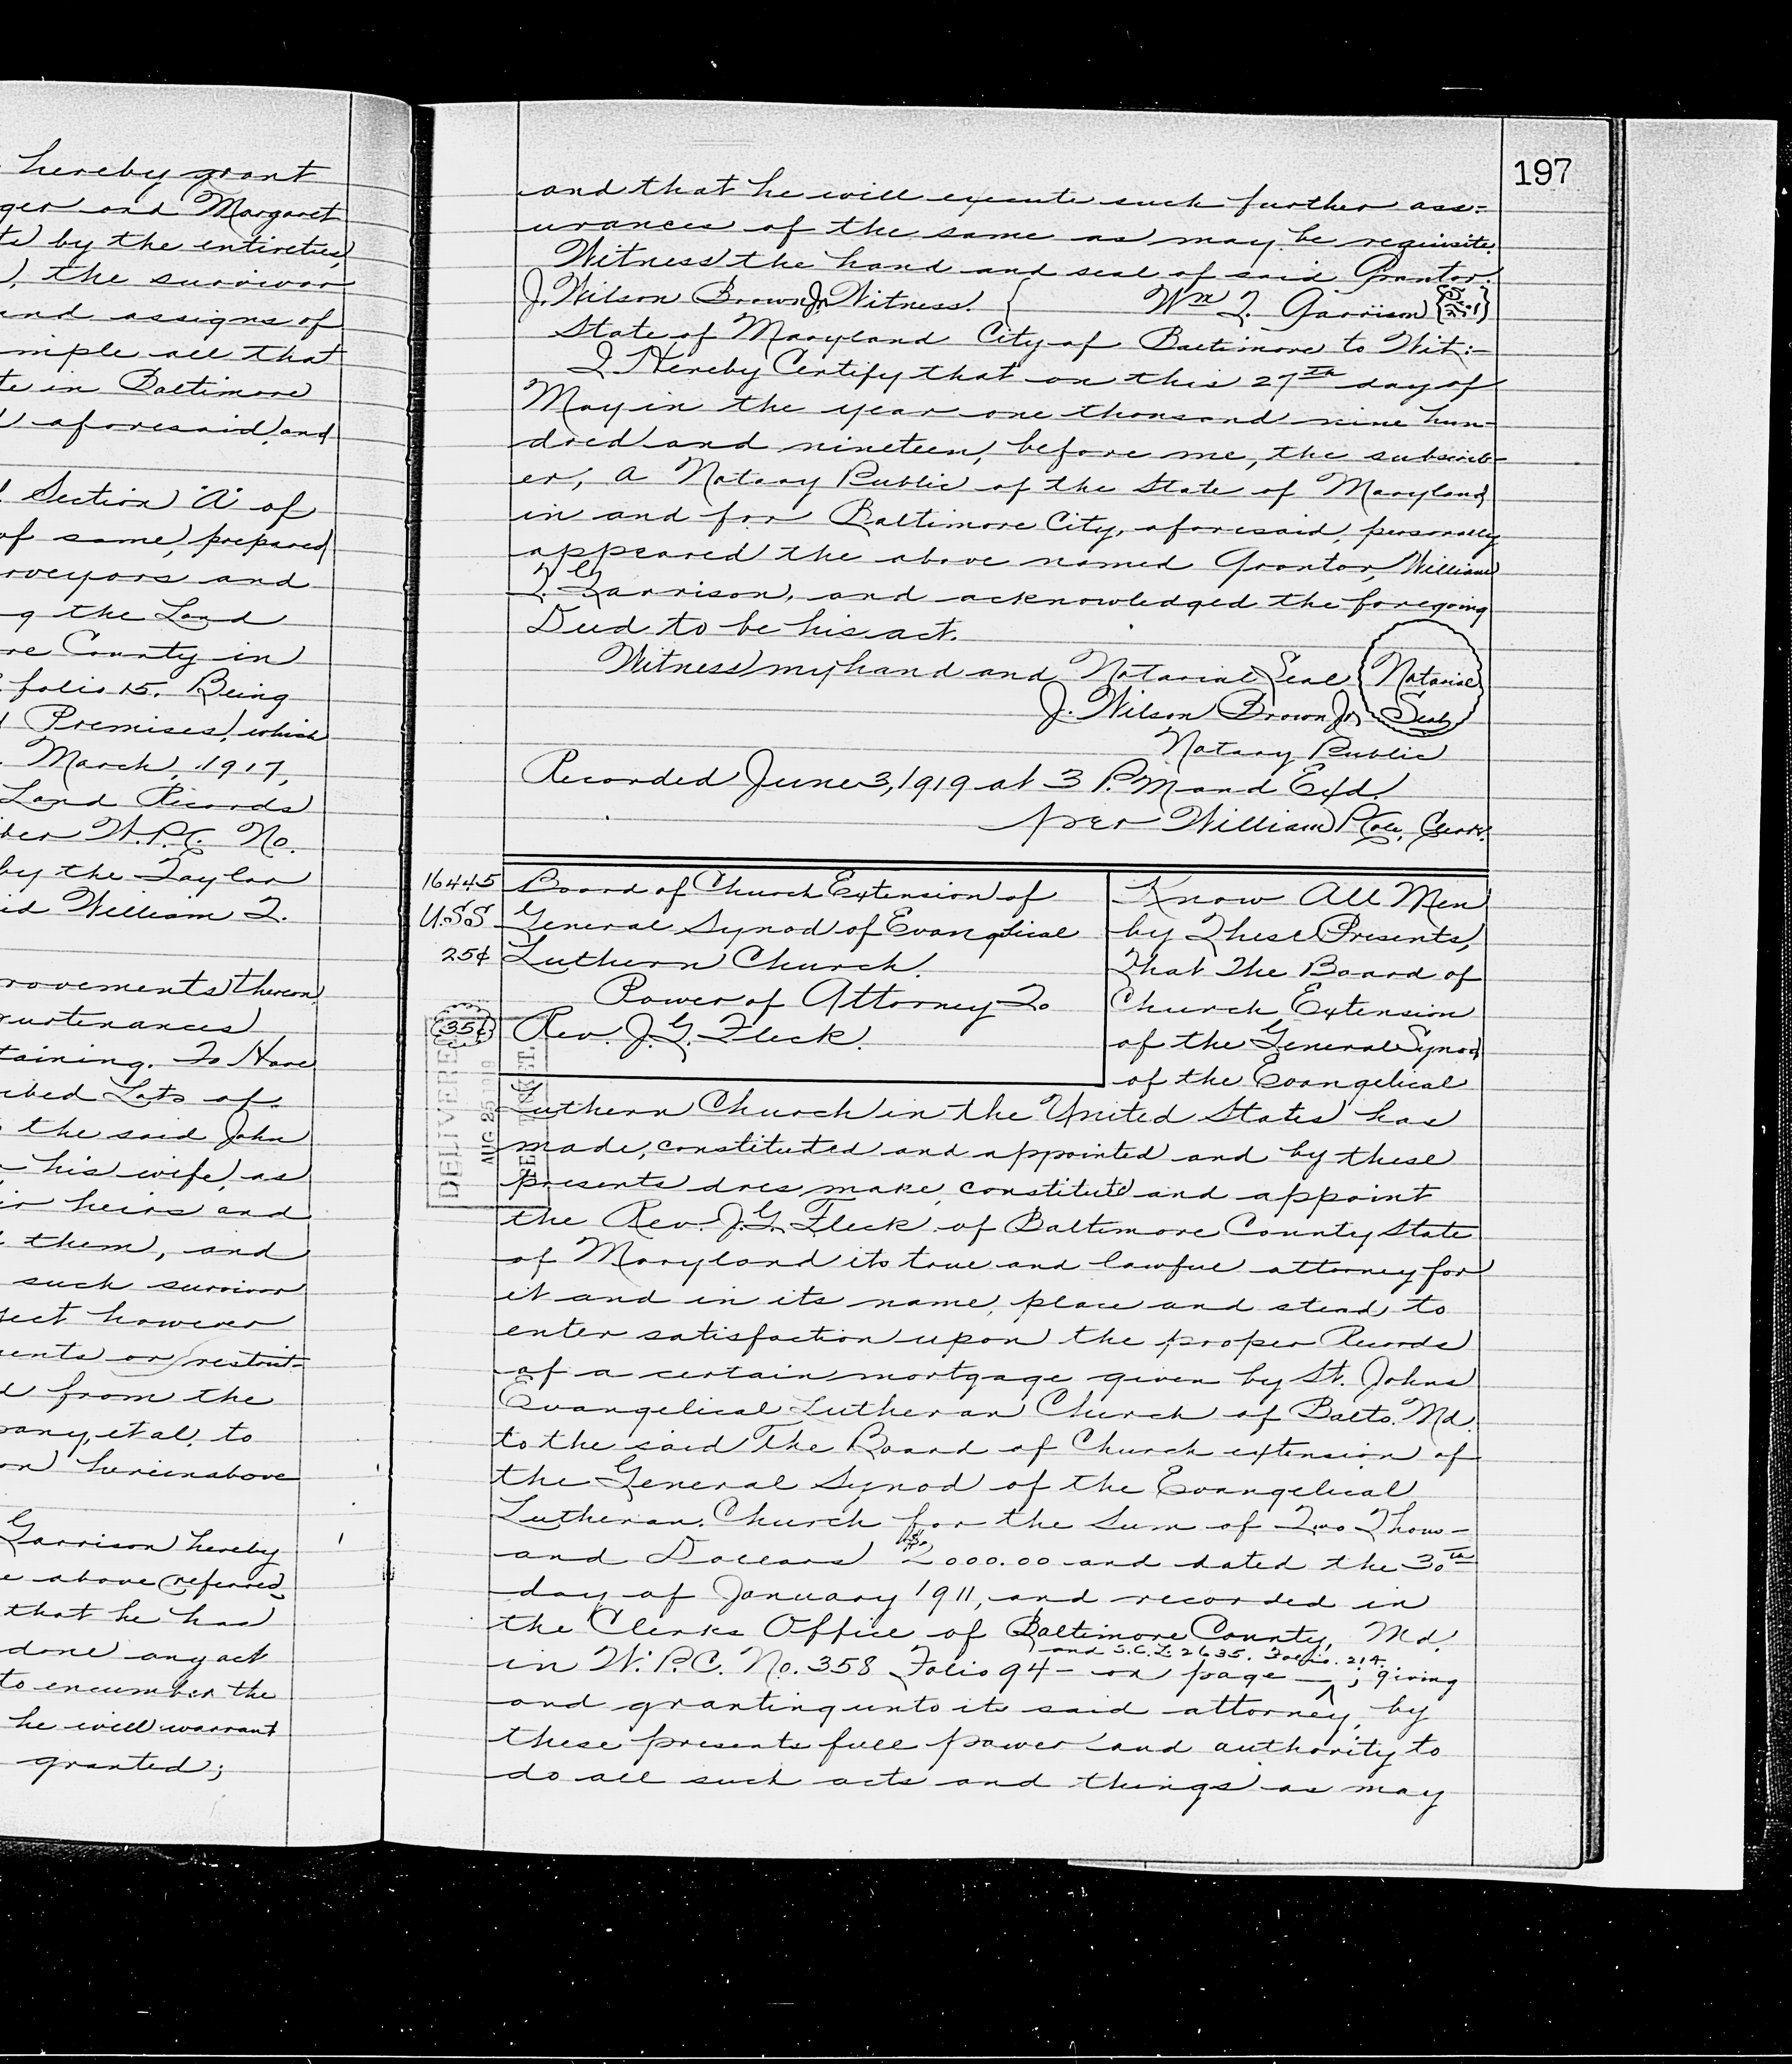 hereby grant
ger and Margaret
by the entireties,
, the survivor
and assigns of
imple all that
te in Baltimore
aforesaid, and
Section "A" of
of same, prepared
rveyors and
g the Land
re County in
folio 15. Being
Premises, which
March, 1917,
Land Records
ber W.P.C. No.
by the Taylor
id William T.
rovements thereon
urtenances
taining. To Have
ribed Lots of
the said John
his wife, as
ir heirs and
them, and
such survivor
ject however
ments or restrict-
d from the
pany, et al, to
on hereinabove
Garrison hereby
e above referred
that he has
done any act
to encumber the
he will warrant
granted;
197
and that he will execute such further ass-
urances of the same as may be requisite.
Witness the hand and seal of said Grantor.
J. Wilson Brown Jr. Witness. { Wm T. Garrison {Seal}
State of Maryland City of Baltimore to Wit:-
I Hereby Certify that on this 27th day of
May in the year one thousand nine hun-
dred and nineteen, before me, the subscrib-
er, a Notary Public of the State of Maryland,
in and for Baltimore City, aforesaid, personally
appeared the above named Grantor, William
T. Garrison, and acknowledged the foregoing
Deed to be his act.
Witness my hand and Notarial Seal (Notarial
J. Wilson Brown Jr. Seal)
Notary Public
Recorded June 3, 1919 at 3 P.M and Exd.
per William P Cole, Clerk.
16445
U.S.S
25¢
35¢
DELIVERED
AUG 25
Board of Church Extension of
General Synod of Evangelical
Luthern Church.
Power of Attorney To
Rev. J.G. Fleck.
Know All Men
by These Presents,
That The Board of
Church Extension
of the General Synod
of the Evangelical
Luthern Church in the United States has
made, constituted and appointed and by these
presents does make, constitute and appoint
the Rev. J.G. Fleck of Baltimore County State
of Maryland its true and lawful attorney for
it and in its name, place and stead, to
enter satisfaction upon the proper Records
of a certain mortgage given by St. Johns
Evangelical Lutheran Church of Balto. Md.
to the said The Board of Church extension of
the General Synod of the Evangelical
Lutheran Church for the Sum of Two Thous-
and Dollars $2000.00 and dated the 30th
day of January 1911, and recorded in
the Clerks Office of Baltimore County, Md.
and S.C.L. 2635. Folio. 214.
in W.P.C. No. 358 Folio 94 - on page —; giving
and granting unto its said attorney, by
these presents full power and authority to
do all such acts and things as may